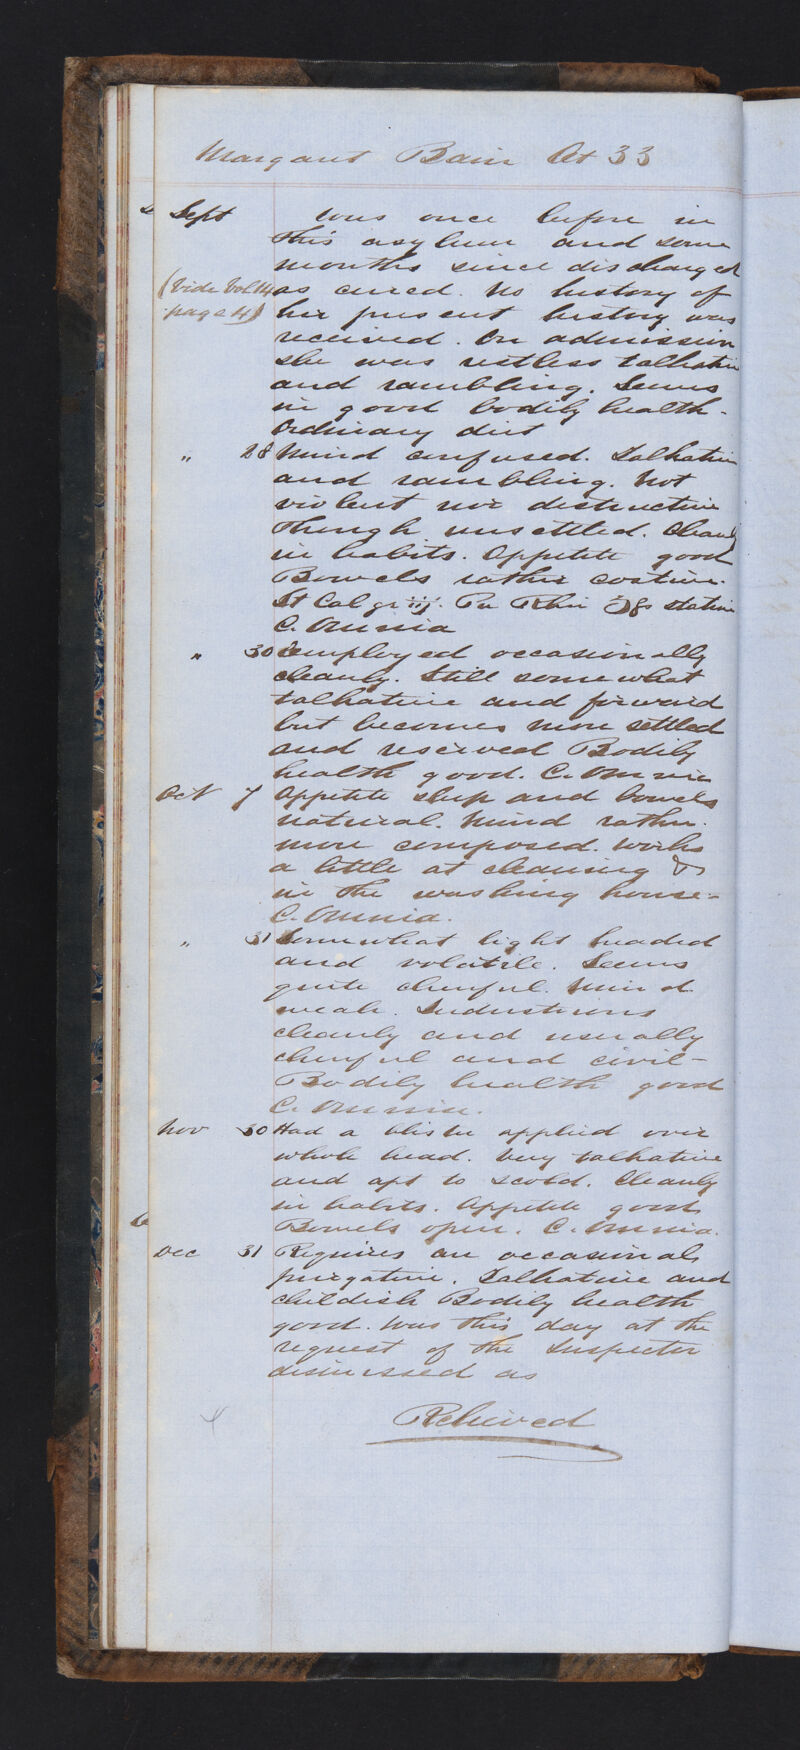 Margaret Bain Æt 33
Sept was once before in
this asylum and some
months since discharged
(Vide Vol 14 as cured. No history of
page 41) her present history was
received. On admission
she was restless talkative
and rambling. Seems
in good bodily health -
Ordinary diet
" 28 Mind confused. Talkative
and rambling. Not
violent nor destructive
though unsettled. Cleanly
in habits. Appetite good
Bowels rather costive.
St Cal gr iij. Pu Rhei ʒſs statim
C. Omnia
" 30 Employed occasionally
cleanly. Still somewhat
talkative and forward
but becomes more settled
and reserved Bodily
health good. C. Omnia
Oct 7 Appetite sleep and bowels
natural. Mind rather
more composed. Works
a little at cleaning &
in the washing house -
C. Omnia.
" 31 Somewhat light headed
and volatile. Seems
quite cheerful. Mind
weak. Industrious
cleanly and usually
cheerful and civil -
Bodily health good
C. Omnia.
Nov 30 Had a blister applied over
whole head. Very talkative
and apt to scold. Cleanly
in habits. Appetite good
Bowels open. C. Omnia.
Dec 31 Requires an occasional
purgative. Talkative and
childish Bodily health
good. Was this day at the
request of the Inspector
dismissed as
Relieved